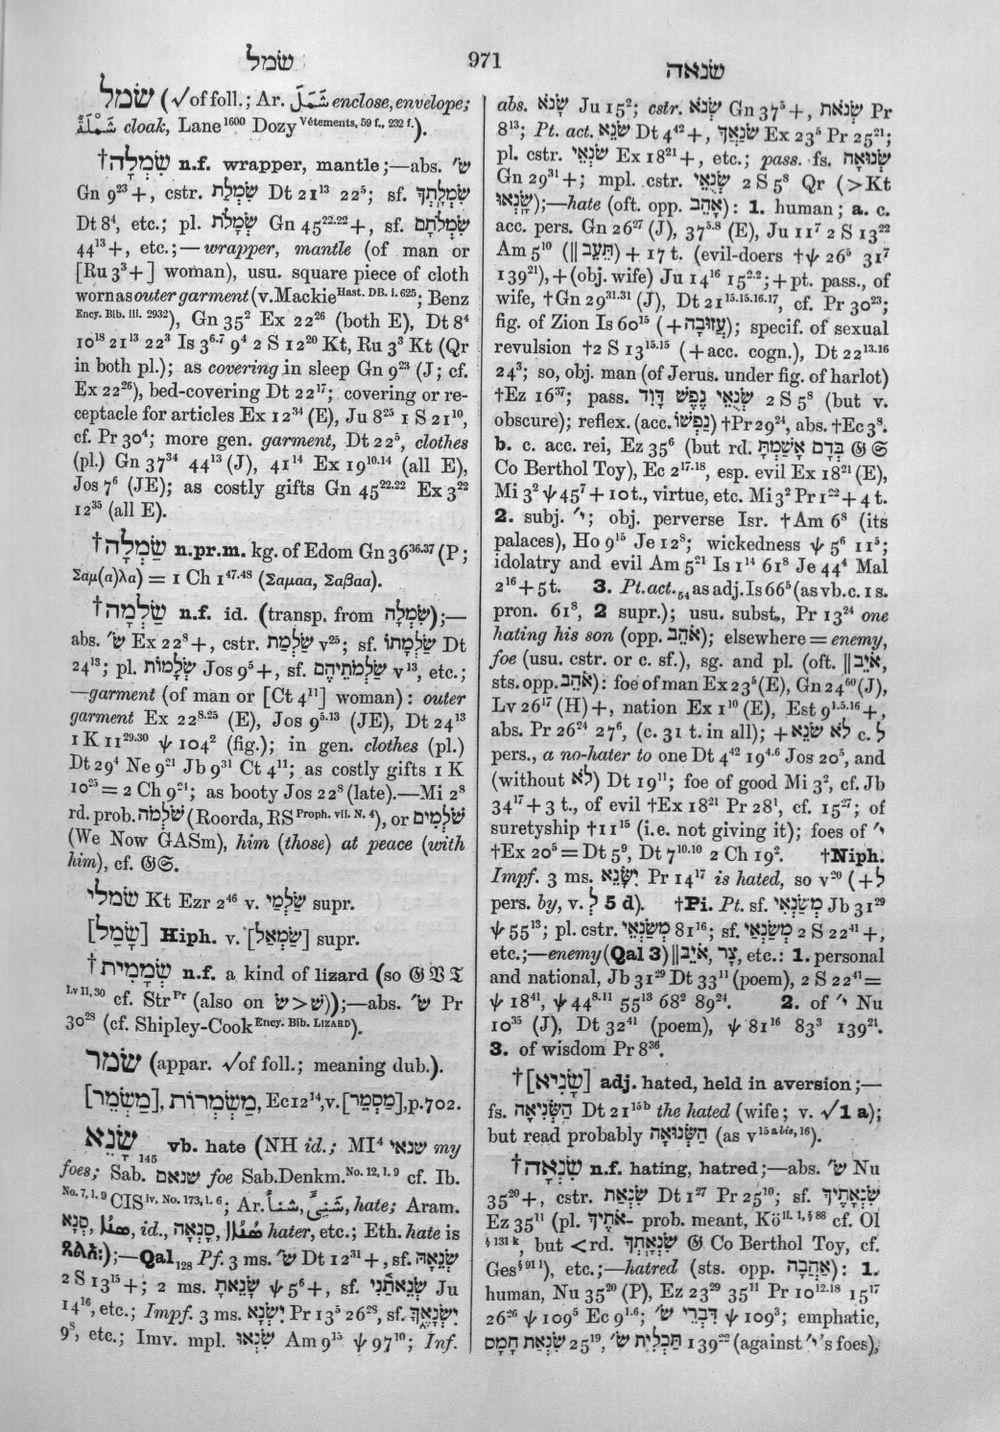 שׂמל
971
שׂנאה
שׂמל (√of foll.; Ar. شَمَلَ enclose, envelope;
شَمْلَةٌ cloak, Lane¹⁶⁰⁰ Dozy Vêtements, 59 f., 232 f.).
†שִׂמְלָה n.f. wrapper, mantle;—abs. שׂ׳
Gn 9²³+, cstr. שִׂמְלַת Dt 21¹³ 22⁵; sf. שִׂמְלָתְךָ
Dt 8⁴, etc.; pl. שְׂמָלֹת Gn 45²²·²²+, sf. שִׂמְלֹתָם
44¹³+, etc.;—wrapper, mantle (of man or
[Ru 3³+] woman), usu. square piece of cloth
worn as outer garment (v. Mackie Hast. DB. i. 625; Benz
Ency. Bib. iii. 2932), Gn 35² Ex 22²⁶ (both E), Dt 8⁴
10¹⁸ 21¹³ 22³ Is 3⁶·⁷ 9⁴ 2 S 12²⁰ Kt, Ru 3³ Kt (Qr
in both pl.); as covering in sleep Gn 9²³ (J; cf.
Ex 22²⁶), bed-covering Dt 22¹⁷; covering or re-
ceptacle for articles Ex 12³⁴ (E), Ju 8²⁵ 1 S 21¹⁰,
cf. Pr 30⁴; more gen. garment, Dt 22⁵, clothes
(pl.) Gn 37³⁴ 44¹³ (J), 41¹⁴ Ex 19¹⁰·¹⁴ (all E),
Jos 7⁶ (JE); as costly gifts Gn 45²²·²² Ex 3²²
12³⁵ (all E).
†שַׂמְלָה n.pr.m. kg. of Edom Gn 36³⁶·³⁷ (P;
Σαμ(α)λα) = 1 Ch 1⁴⁷·⁴⁸ (Σαμαα, Σαβαα).
†שַׂלְמָה n.f. id. (transp. from שִׂמְלָה);—
abs. שׂ׳ Ex 22⁸+, cstr. שַׂלְמַת v²⁵; sf. שַׂלְמָתוֹ Dt
24¹³; pl. שְׂלָמוֹת Jos 9⁵+, sf. שַׂלְמֹתֵיהֶם v¹³, etc.;
—garment (of man or [Ct 4¹¹] woman): outer
garment Ex 22⁸·²⁵ (E), Jos 9⁵·¹³ (JE), Dt 24¹³
1 K 11²⁹·³⁰ ψ 104² (fig.); in gen. clothes (pl.)
Dt 29⁴ Ne 9²¹ Jb 9³¹ Ct 4¹¹; as costly gifts 1 K
10²⁵ = 2 Ch 9²⁴; as booty Jos 22⁸ (late).—Mi 2⁸
rd. prob. שֹׁלְמֹה (Roorda, RS Proph. vii. N. 4), or שֹׁלְמִים
(We Now GASm), him (those) at peace (with
him), cf. 𝔊𝔖.
שׂמלי Kt Ezr 2⁴⁶ v. שַׂלְמַי supr.
[שָׂמַל] Hiph. v. [שְׂמֹאל] supr.
†שְׂמָמִית n.f. a kind of lizard (so 𝔊 𝔙 𝔗
Lv 11, 30 cf. Str Pr (also on שׂ>שׁ));—abs. שׂ׳ Pr
30²⁸ (cf. Shipley-Cook Ency. Bib. LIZARD).
שׂמר (appar. √of foll.; meaning dub.).
[מַשְׂמֵר], מַשְׂמְרוֹת, Ec 12¹⁴, v. [מַסְמֵר], p. 702.
שָׂנֵא₁₄₅ vb. hate (NH id.; MI⁴ שנאי my
foes; Sab. שנאם foe Sab.Denkm. No. 12, 1. 9 cf. Ib.
No. 7, 1. 9 CIS iv, No. 173, 1. 6; Ar. شَنِئَ, شَنَأَ, hate; Aram.
סְנָא, ܣܢܐ, id., סָנְאָה, ܣܢܐܐ hater, etc.; Eth. hate is
ጸልአ:);—Qal₁₂₈ Pf. 3 ms. שׂ׳ Dt 12³¹+, sf. שְׂנֵאָהּ
2 S 13¹⁵+; 2 ms. שָׂנֵאתָ ψ 5⁶+, sf. שְׂנֵאתַנִי Ju
14¹⁶, etc.; Impf. 3 ms. יִשְׂנָא Pr 13⁵ 26²⁸, sf. יִשְׂנָאֶךָּ
9⁸, etc.; Imv. mpl. שִׂנְאוּ Am 9¹⁵ ψ 97¹⁰; Inf.
abs. שָׂנֹא Ju 15²; cstr. שְׂנֹא Gn 37⁵+, שְׂנֹאת Pr
8¹³; Pt. act. שֹׂנֵא Dt 4⁴²+, שֹׂנַאֲךָ Ex 23⁵ Pr 25²¹;
pl. cstr. שֹׂנְאֵי Ex 18²¹+, etc.; pass. fs. שְׂנוּאָה
Gn 29³¹+; mpl. cstr. שְׂנֻאֵי 2 S 5⁸ Qr (>Kt
שָׂנְאוּ);—hate (oft. opp. אָהֵב): 1. human; a. c.
acc. pers. Gn 26²⁷ (J), 37⁵·⁸ (E), Ju 11⁷ 2 S 13²²
Am 5¹⁰ (||תִּעֵב) + 17 t. (evil-doers †ψ 26⁵ 31⁷
139²¹), +(obj. wife) Ju 14¹⁶ 15²·²; + pt. pass., of
wife, †Gn 29³¹·³¹ (J), Dt 21¹⁵·¹⁵·¹⁶·¹⁷, cf. Pr 30²³;
fig. of Zion Is 60¹⁵ (+עֲזוּבָה); specif. of sexual
revulsion †2 S 13¹⁵·¹⁵ (+acc. cogn.), Dt 22¹³·¹⁶
24³; so, obj. man (of Jerus. under fig. of harlot)
†Ez 16³⁷; pass. שְׂנֻאֵי נֶפֶשׁ דָּוִד 2 S 5⁸ (but v.
obscure); reflex. (acc. נַפְשׁוֹ) †Pr 29²⁴, abs. †Ec 3⁸.
b. c. acc. rei, Ez 35⁶ (but rd. בְּדָם אָשַׁמְתָּ 𝔊 𝔖
Co Berthol Toy), Ec 2¹⁷·¹⁸, esp. evil Ex 18²¹ (E),
Mi 3² ψ 45⁷ + 10 t., virtue, etc. Mi 3² Pr 1²² + 4 t.
2. subj. י׳; obj. perverse Isr. †Am 6⁸ (its
palaces), Ho 9¹⁵ Je 12⁸; wickedness ψ 5⁶ 11⁵;
idolatry and evil Am 5²¹ Is 1¹⁴ 61⁸ Je 44⁴ Mal
2¹⁶ + 5 t. 3. Pt. act.₅₄ as adj. Is 66⁵ (as vb. c. 1 s.
pron. 61⁸, 2 supr.); usu. subst., Pr 13²⁴ one
hating his son (opp. אֹהֵב); elsewhere = enemy,
foe (usu. cstr. or c. sf.), sg. and pl. (oft. ||אֹיֵב,
sts. opp. אֹהֵב): foe of man Ex 23⁵ (E), Gn 24⁶⁰ (J),
Lv 26¹⁷ (H)+, nation Ex 1¹⁰ (E), Est 9¹·⁵·¹⁶+,
abs. Pr 26²⁴ 27⁶, (c. 31 t. in all); + לֹא שֹׂנֵא c. לְ
pers., a no-hater to one Dt 4⁴² 19⁴·⁶ Jos 20⁵, and
(without לֹא) Dt 19¹¹; foe of good Mi 3², cf. Jb
34¹⁷ + 3 t., of evil †Ex 18²¹ Pr 28¹, cf. 15²⁷; of
suretyship †11¹⁵ (i.e. not giving it); foes of י׳
†Ex 20⁵ = Dt 5⁹, Dt 7¹⁰·¹⁰ 2 Ch 19². †Niph.
Impf. 3 ms. יִשָּׂנֵא Pr 14¹⁷ is hated, so v²⁰ (+לְ
pers. by, v. לְ 5 d). †Pi. Pt. sf. מְשַׂנְאִי Jb 31²⁹
ψ 55¹³; pl. cstr. מְשַׂנְאֵי 81¹⁶; sf. מְשַׂנְאַי 2 S 22⁴¹+,
etc.;—enemy (Qal 3) ||אֹיֵב, צַר, etc.: 1. personal
and national, Jb 31²⁹ Dt 33¹¹ (poem), 2 S 22⁴¹ =
ψ 18⁴¹, ψ 44⁸·¹¹ 55¹³ 68² 89²⁴. 2. of י׳ Nu
10³⁵ (J), Dt 32⁴¹ (poem), ψ 81¹⁶ 83³ 139²¹.
3. of wisdom Pr 8³⁶.
†[שָׂנִיא] adj. hated, held in aversion;—
fs. הַשְּׂנִיאָה Dt 21¹⁵ᵇ the hated (wife; v. √1 a);
but read probably הַשְּׂנוּאָה (as v¹⁵ ᵃ ᵇⁱˢ, ¹⁶).
†שִׂנְאָה n.f. hating, hatred;—abs. שׂ׳ Nu
35²⁰+, cstr. שִׂנְאַת Dt 1²⁷ Pr 25¹⁰; sf. שִׂנְאָתֶיךָ
Ez 35¹¹ (pl. אֹתֶיךָ- prob. meant, Kö ii. 1, § 88 cf. Ol
§ 131 k, but <rd. שִׂנְאָתְךָ 𝔊 Co Berthol Toy, cf.
Ges § 91 l), etc.;—hatred (sts. opp. אַהֲבָה): 1.
human, Nu 35²⁰ (P), Ez 23²⁹ 35¹¹ Pr 10¹²·¹⁸ 15¹⁷
26²⁶ ψ 109⁵ Ec 9¹·⁶; דִּבְרֵי שׂ׳ ψ 109³; emphatic,
שִׂנְאַת חָמָס 25¹⁹, תַּכְלִית שׂ׳ 139²² (against י׳'s foes),